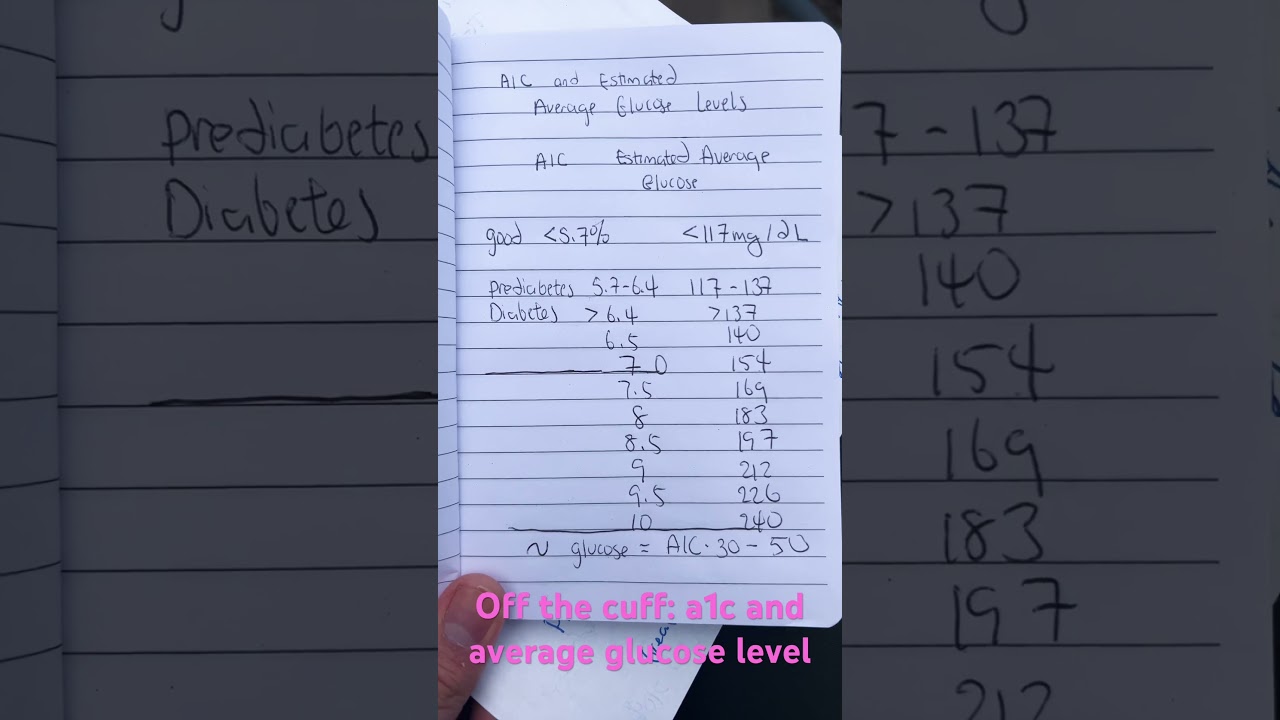 A1C and Estimated
Average Glucose Levels
A1C Estimated Average
Glucose
good <5.7% <117mg/dL
prediabetes 5.7-6.4 117-137
Diabetes >6.4 >137
6.5 140
7.0 154
7.5 169
8 183
8.5 197
9 212
9.5 226
10 240
~ glucose = A1C·30-50
Off the cuff: a1c and
average glucose level
prediabetes
Diabetes
7-137
>137
140
154
169
183
197
212